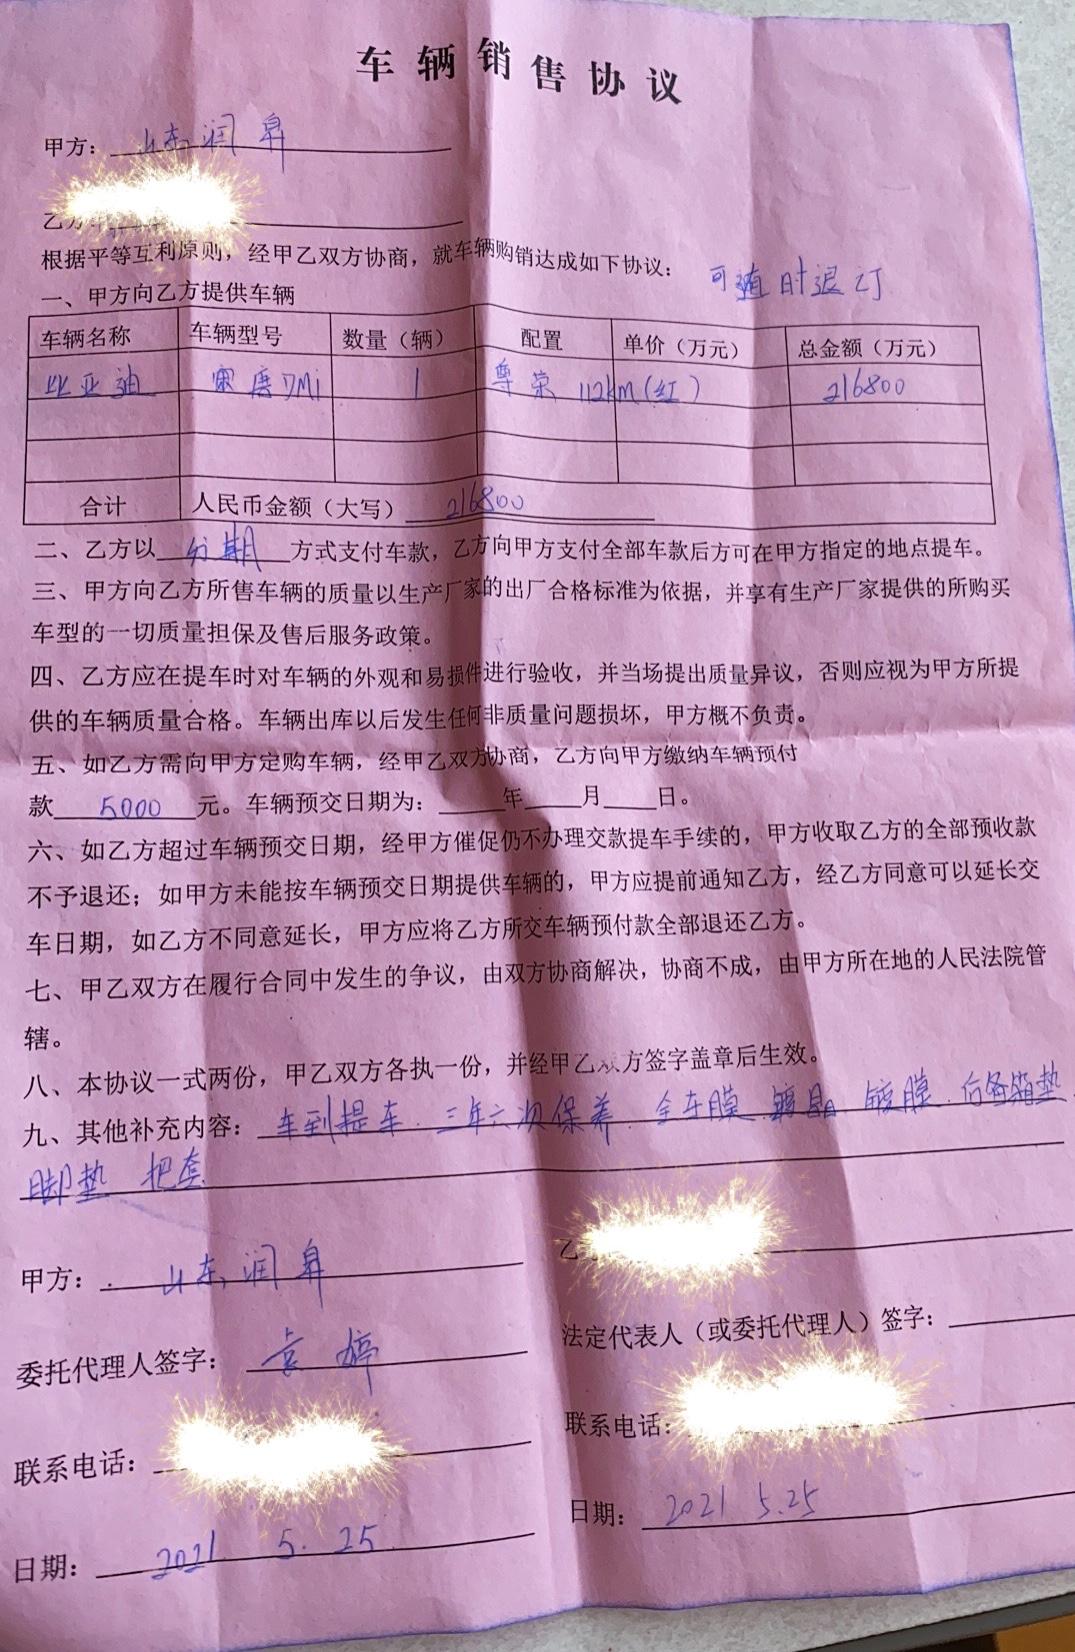 车辆销售协议
甲方：山东润阜
乙方
根据平等互利原则，经甲乙双方协商，就车辆购销达成如下协议：
可随时退订
一、甲方向乙方提供车辆
车辆名称 车辆型号 数量（辆） 配置 单价（万元） 总金额（万元）
比亚迪 宋唐DMi 1 尊荣 112km（红） 216800
合计 人民币金额（大写） 216800
二、乙方以 分期 方式支付车款，乙方向甲方支付全部车款后方可在甲方指定的地点提车。
三、甲方向乙方所售车辆的质量以生产厂家的出厂合格标准为依据，并享有生产厂家提供的所购买
车型的一切质量担保及售后服务政策。
四、乙方应在提车时对车辆的外观和易损件进行验收，并当场提出质量异议，否则应视为甲方所提
供的车辆质量合格。车辆出库以后发生任何非质量问题损坏，甲方概不负责。
五、如乙方需向甲方定购车辆，经甲乙双方协商，乙方向甲方缴纳车辆预付
款 5000 元。车辆预交日期为：____年____月____日。
六、如乙方超过车辆预交日期，经甲方催促仍不办理交款提车手续的，甲方收取乙方的全部预收款
不予退还；如甲方未能按车辆预交日期提供车辆的，甲方应提前通知乙方，经乙方同意可以延长交
车日期，如乙方不同意延长，甲方应将乙方所交车辆预付款全部退还乙方。
七、甲乙双方在履行合同中发生的争议，由双方协商解决，协商不成，由甲方所在地的人民法院管
辖。
八、本协议一式两份，甲乙双方各执一份，并经甲乙双方签字盖章后生效。
九、其他补充内容：车到提车. 三年六次保养. 全车膜 镀晶 镀膜. 后备箱垫
脚垫 把套
甲方：山东润阜
乙
委托代理人签字：袁婷
法定代表人（或委托代理人）签字：
联系电话：
联系电话：
日期：2021 5. 25
日期：2021 5.25